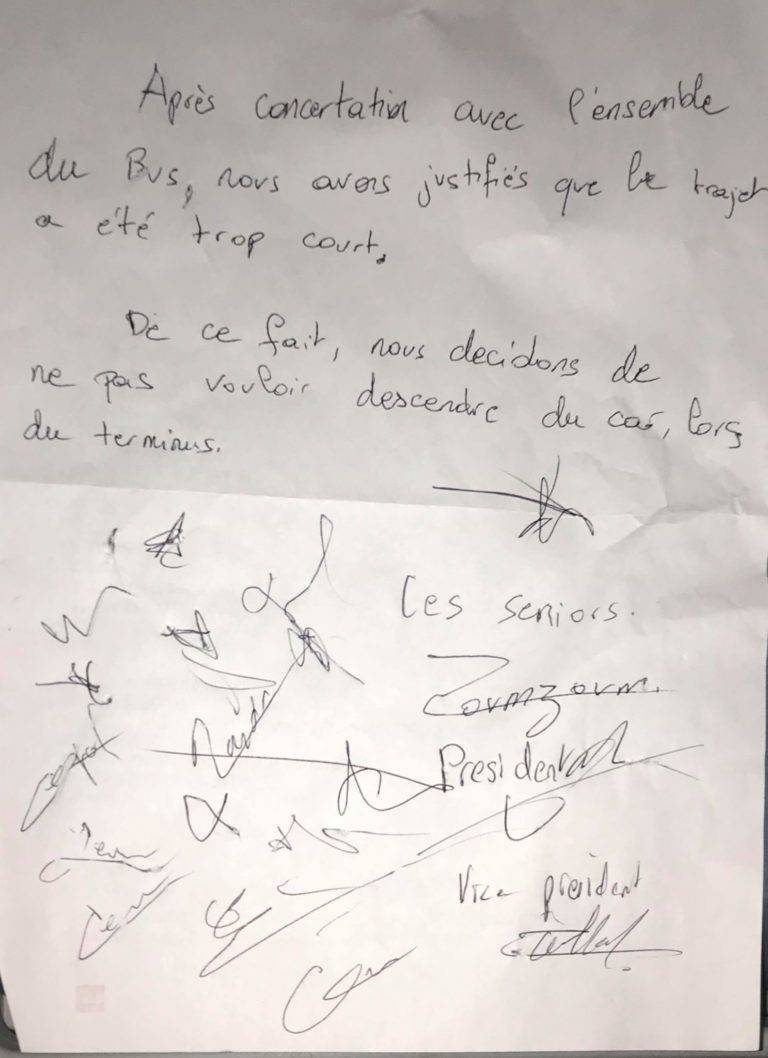 Après concertation avec l'ensemble
du Bus, nous avons justifiés que le trajet
a été trop court.
De ce fait, nous decidons de
ne pas vouloir descendre du car, lors
du terminus.
Les seniors.
Zoumzoum.
President
Vice président